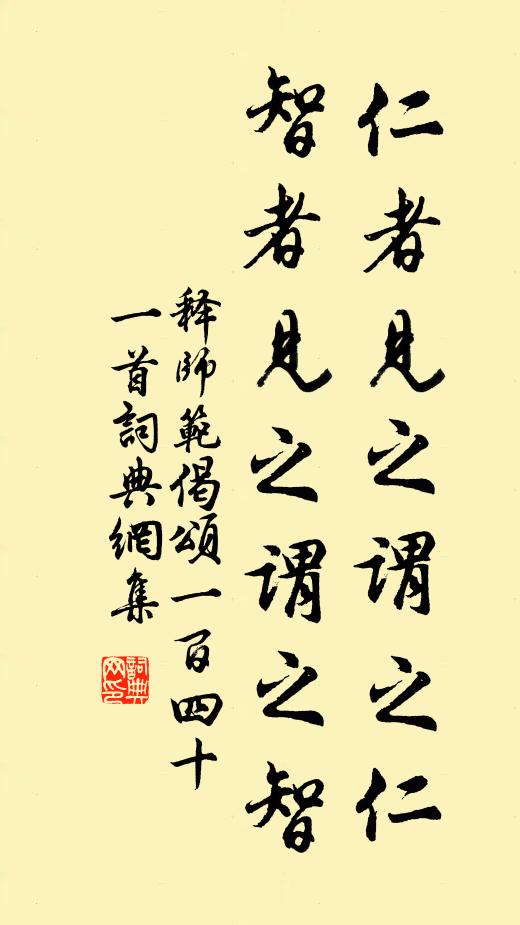 仁者見之謂之仁
智者見之謂之智
释師範偈頌一百四十
一首詞典網集
詞典
网印